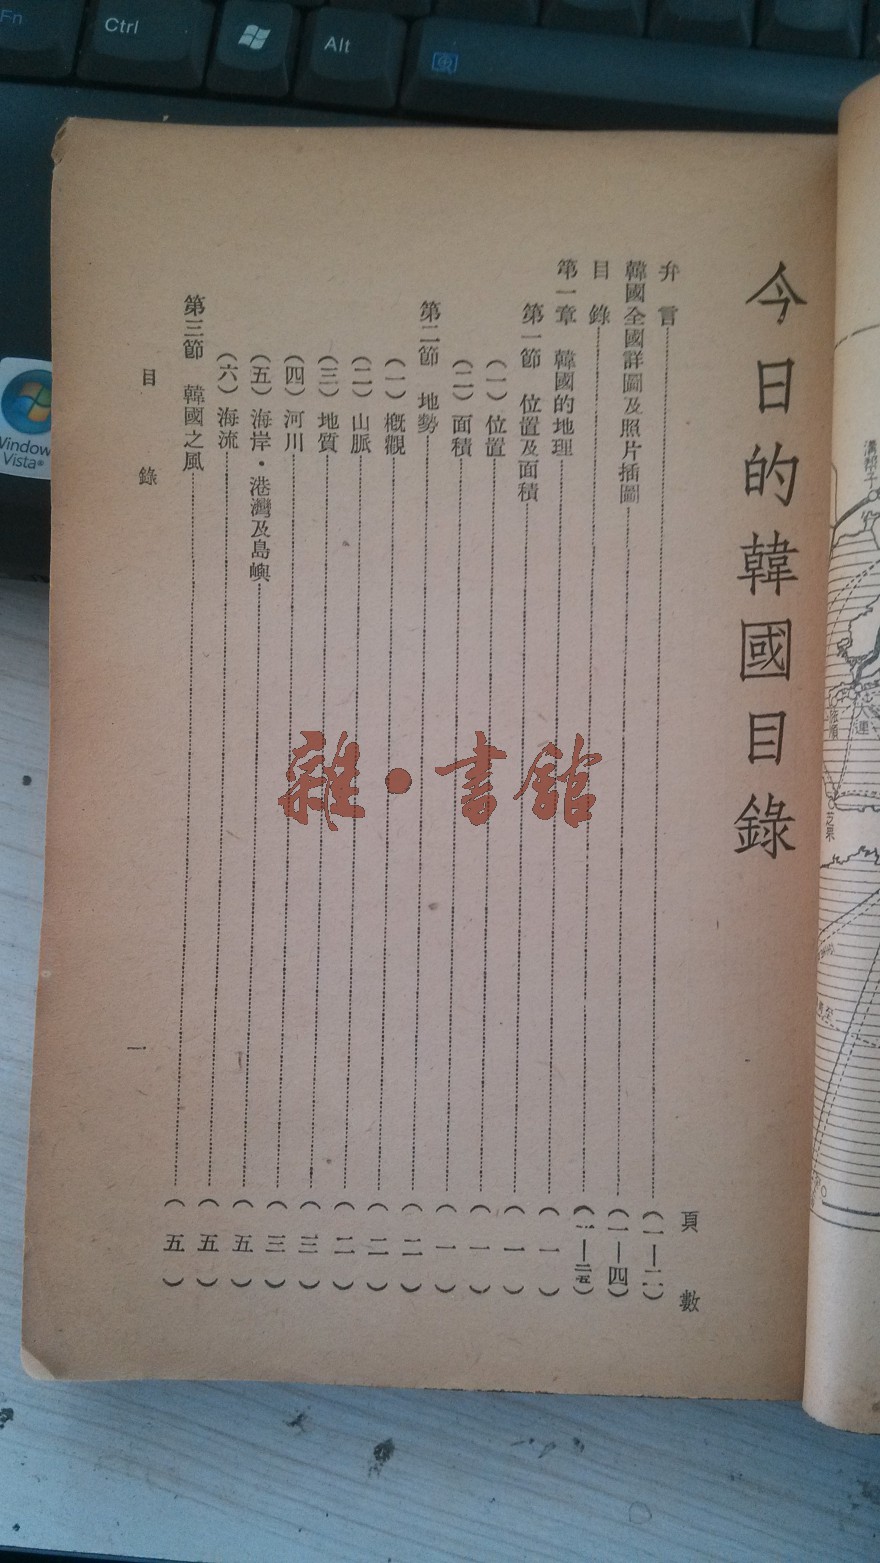 今日的韓國目錄
頁 數
弁 言……(一—二)
韓國全國詳圖及照片插圖……(一—四)
目 錄……
第一章 韓國的地理……(一)
第一節 位置及面積……(一)
(一)位置……(一)
(二)面積……(一)
第二節 地勢……(二)
(一)概觀……(二)
(二)山脈……(二)
(三)地質……(三)
(四)河川……(三)
(五)海岸·港灣及島嶼……(五)
(六)海流……(五)
第三節 韓國之風……(五)
目 錄
一
雜·書館
Fn
Ctrl
Alt
Windows
Vista
溝幫子
旅順
大連
芝罘